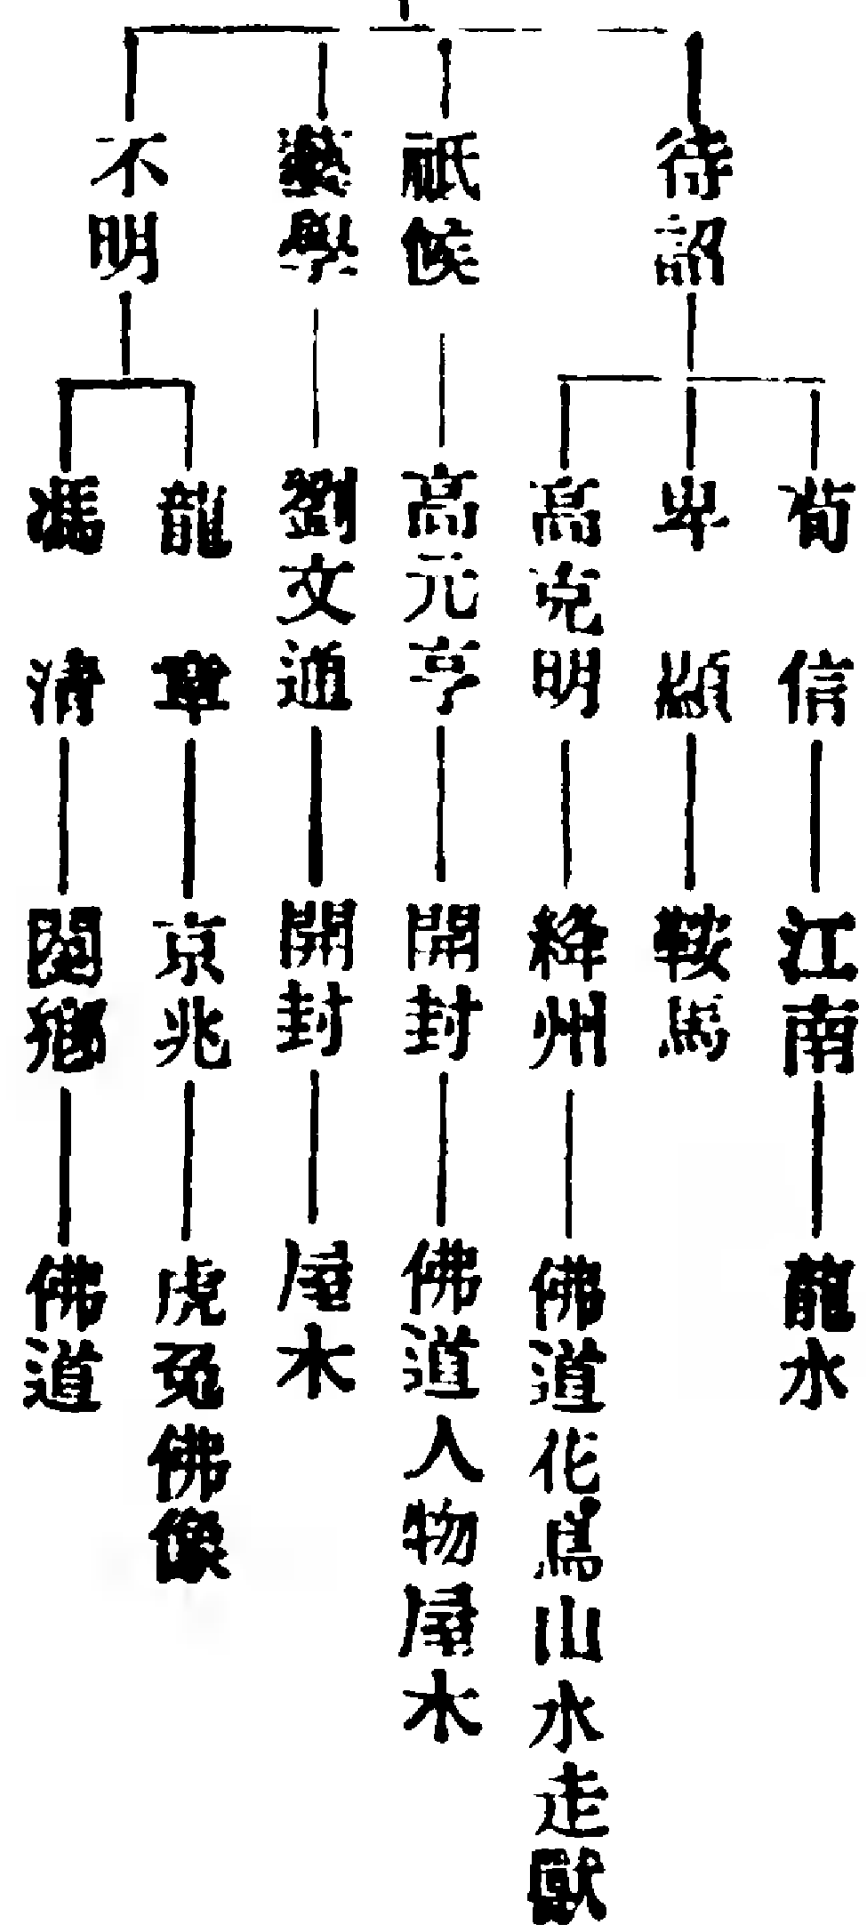 待詔
荀信 江南 龍水
卑顯 鞍馬
高克明 絳州 佛道花鳥山水走獸
祗候
高元亨 開封 佛道人物屋木
藝學
劉文通 開封 屋木
不明
龍章 京兆 虎兔佛像
馮清 閿鄉 佛道